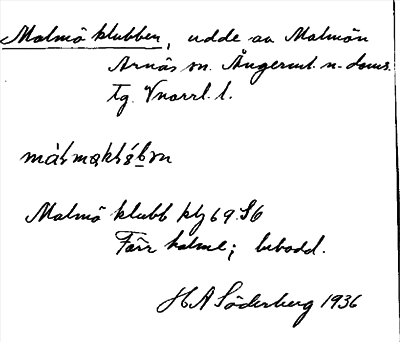 Malmö klubben, udde av Malmön
Arnäs sn. Ångerml. n. doms.
tg. Vnorrl. l.
Malmö klubb klg 69.S6
Förr holme; bebodd.
H A Söderberg 1936